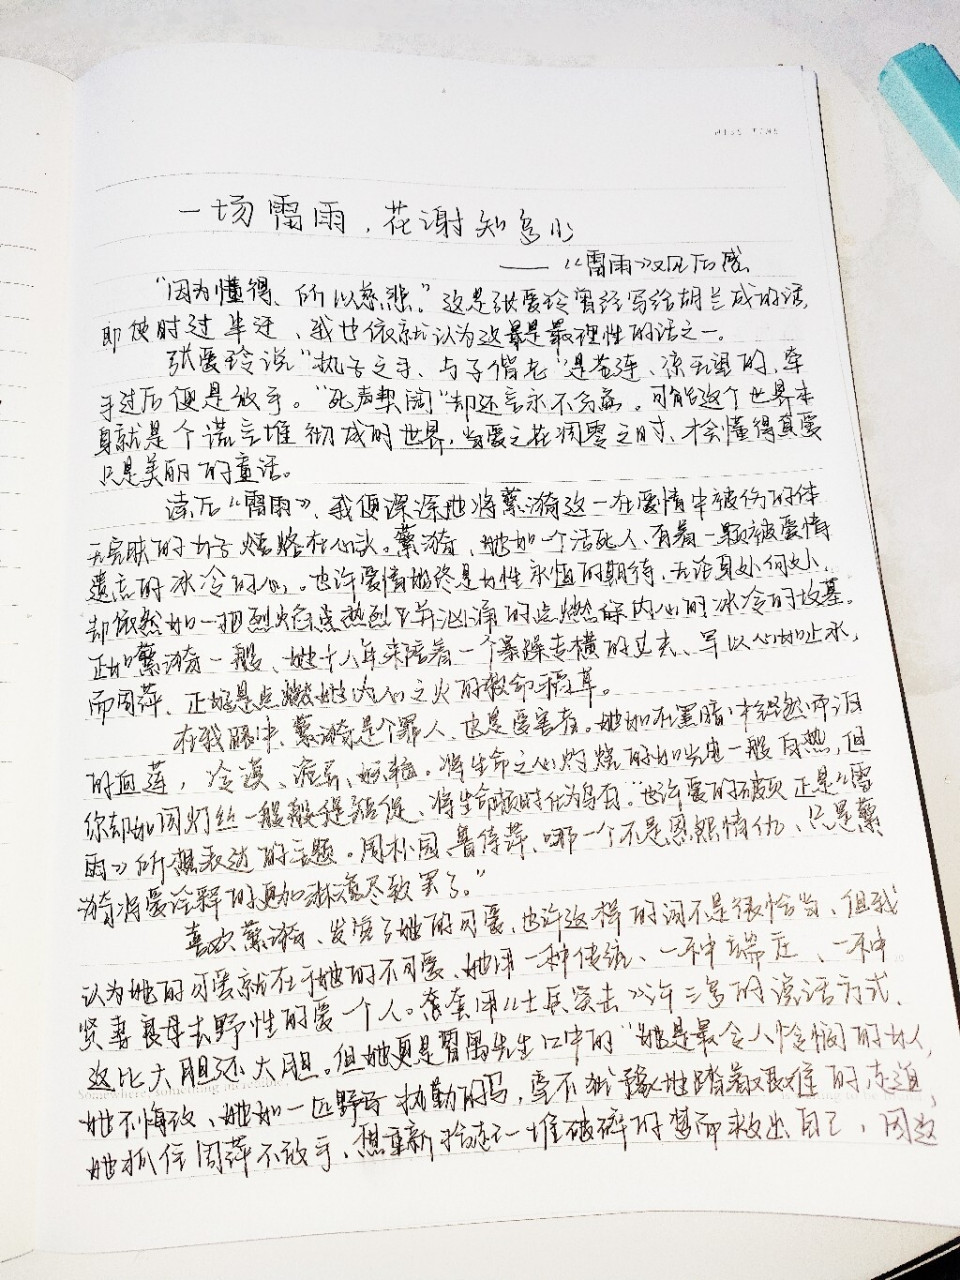 一场雷雨，花谢知多少
——《雷雨》观后感
“因为懂得、所以慈悲。”这是张爱玲曾经写给胡兰成的话，
即使时过半迁、我也依就认为这最是最理性的话之一。
张爱玲说“执子之手、与子偕老”是苍连、凉无望的，牵
手过后便是放手。“死声契阔”却还言永不分离。可能这个世界本
身就是个谎言堆彻成的世界，当爱之花凋零之时、才会懂得真爱
只是美丽的童话。
读后《雷雨》、我便深深地将蘩漪这一在爱情中被伤的体
无完肤的女子熔烙在心头。蘩漪、她如一个活死人、有着一颗被爱情
遗忘的冰冷的心。也许爱情始终是女性永恒的期待、无论身处何处、
却依然如一把烈焰 热烈 并汹涌的点燃 内心的冰冷的坟墓。
正如蘩漪一般、她十八年来陪着一个暴躁专横的丈夫、早以心如止水，
而周萍、正好是点燃她内心之火的救命稻草。
在我眼中、蘩漪是个罪人、也是受害者。她如在黑暗中
的血莲，冷漠、诡异、 。将生命之心灼烧的如当电一般白热，但
你却如同灯丝一般 、将生命顿时化为乌有。“也许爱的破灭正是《雷
雨》所想表达的主题。周朴园、鲁侍萍、哪一个不是恩怨情仇、只是蘩
漪将爱诠释的更加淋漓尽致罢了。”
喜欢蘩漪、发觉了她的可爱、也许这样的词不是很恰当、但我
认为她的可爱就在于她的不可爱、她用一种传统、一种端庄、一种
贤妻良母去野性的爱一个人。套套用《士兵突击》许三多的说话方式、
这比大胆还大胆。但她更是曹禺先生口中的“她是最令人怜悯的女人，
她不悔改、她如一匹野 执勤的马，毫不犹豫地踏着艰难的老道，
她抓住周萍不放手、想重新拾起一堆破碎的梦而救出自己，因这